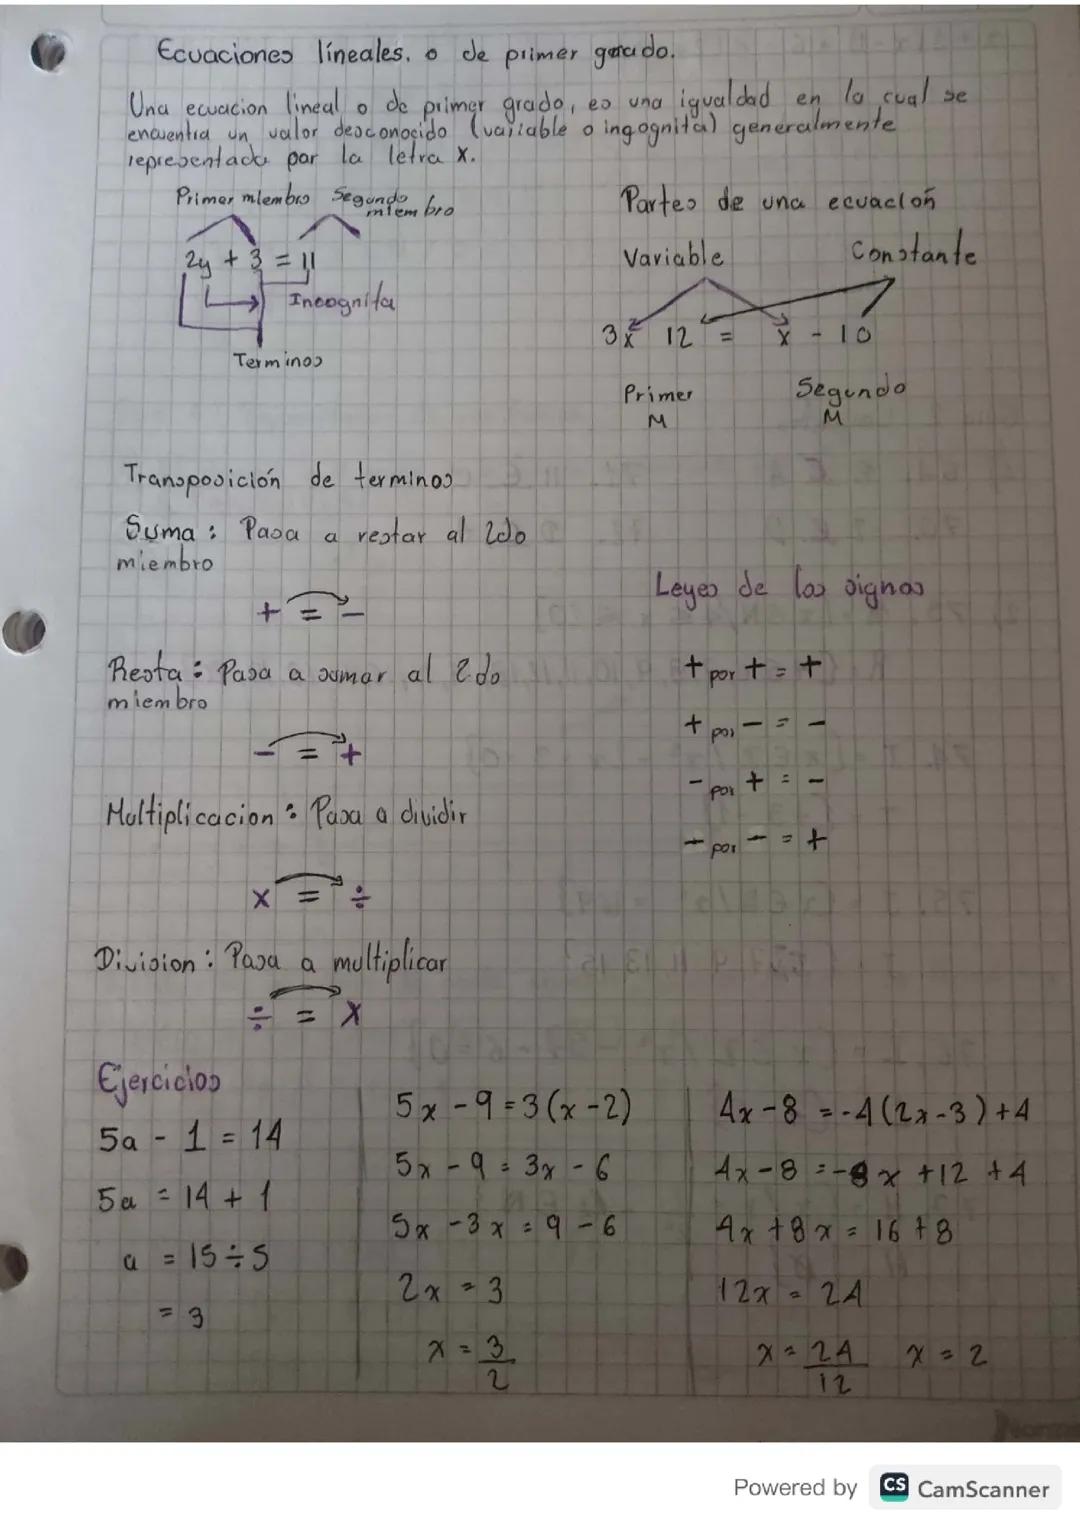 Ecuaciones líneales. o de primer grado.
Una ecuacion lineal o de primer grado, es una igualdad en la cual se
encuentra un valor desconocido (variable o ingognita) generalmente
representado por la letra x.
Primer miembro Segundo miembro
2y + 3 = 11
Incognita
Terminos
Partes de una ecuación
Variable Constante
3x 12 = x - 10
Primer M Segundo M
Transposición de terminos
Suma: Pasa a restar al 2do
miembro
+ = -
Resta: Pasa a sumar al 2do
miembro
- = +
Multiplicacion: Pasa a dividir
x = ÷
Division: Pasa a multiplicar
÷ = x
Leyes de los signos
+ por + = +
+ por - = -
- por + = -
- por - = +
Ejercicios
5a - 1 = 14
5a = 14 + 1
a = 15 ÷ 5
= 3
5x - 9 = 3(x - 2)
5x - 9 = 3x - 6
5x - 3x = 9 - 6
2x = 3
x = 3/2
4x - 8 = -4(2x - 3) + 4
4x - 8 = -8x + 12 + 4
4x + 8x = 16 + 8
12x = 24
x = 24/12 x = 2
Powered by CS CamScanner